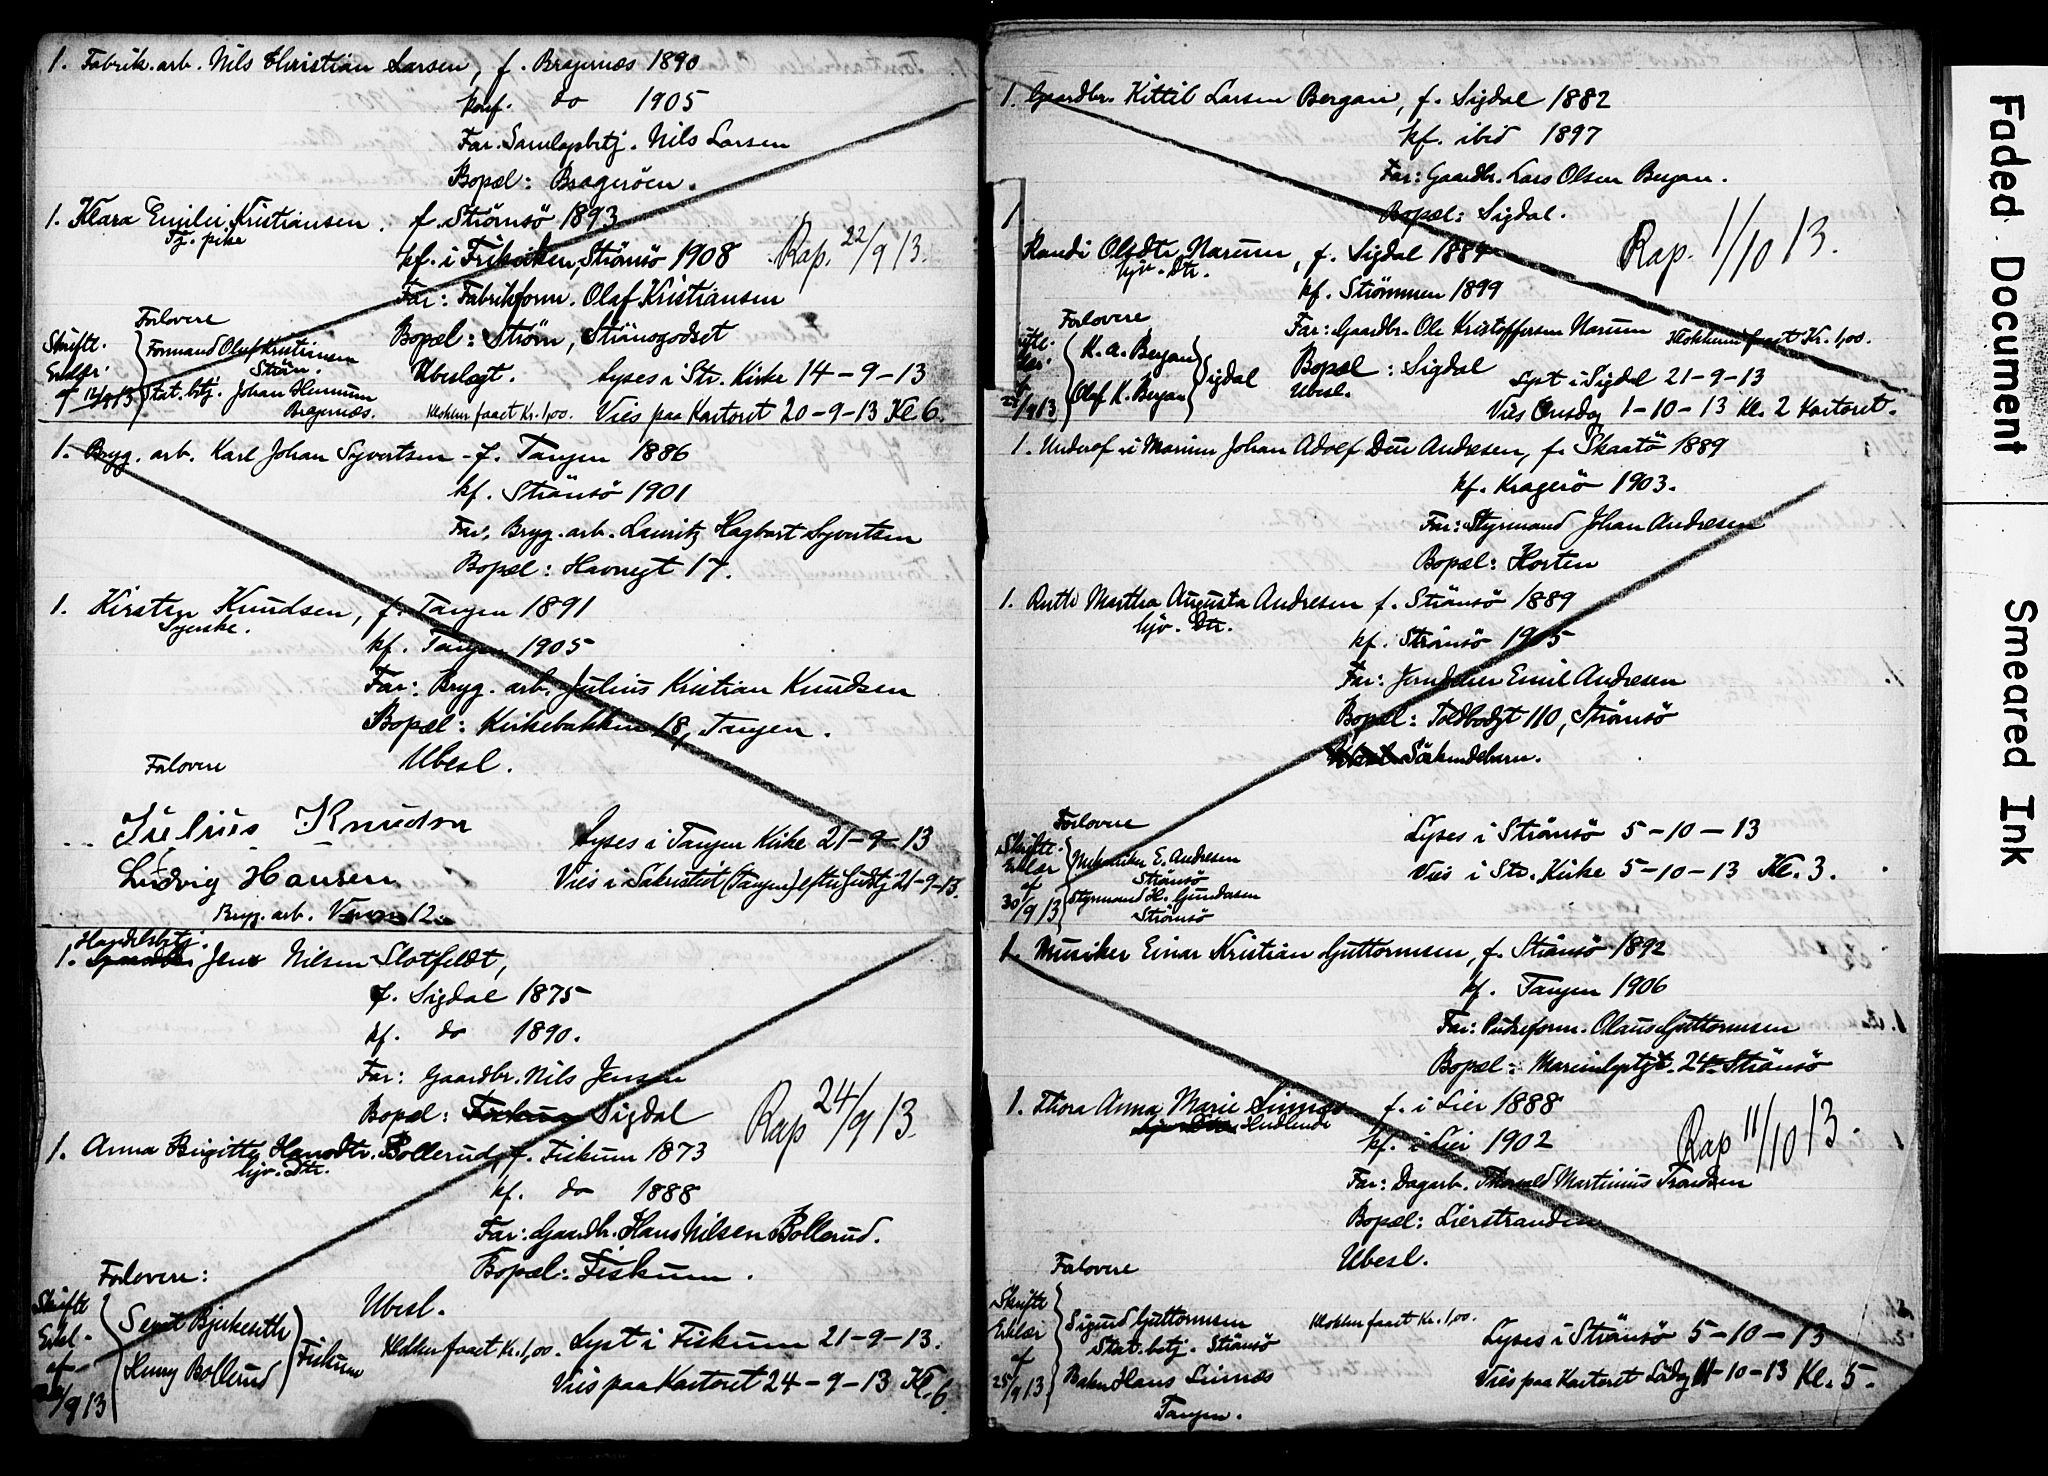 1. Fabrik. arb. Nils Christian Larsen, f. Bragernæs 1890
konf. do 1905
Far. Samlagsbetj. Nils Larsen
Bopæl: Bragerøen.
1. Klara Emilie Kristiansen. f. Strømsö 1893
Tj. pike
kf. i Frikirken, Strömsö 1908 Rap. 22/9 13.
Far: Fabrikform. Olaf Kristiansen
Forlovere
Bopæl: Strøm, Strömsgodset
Skriftl.
Erklær.
af 12/9 13
Formand Olaf Kristiansen
Ström.
Stat. btj. Johan Hennum
Bragernæs.
Ubeslegt. Lyses i Str. Kirke 14-9-13
Klokker faaet Kr. 1,00. Vies paa Kontoret 20-9-13 Kl. 6.
1. Bryg. arb. Karl Johan Syvertsen - f. Tangen 1886
kf. Strömsö 1901
Far. Bryg. arb. Lauritz Hagbart Syvertsen
Bopæl: Havnegt 17.
1. Kirsten Knudsen, f. Tangen 1891
Syerske.
kf. Tangen 1905
Far: Bryg. arb. Julius Kristian Knudsen
Bopæl: Kirkebakken 18, Tangen.
Forlovere Ubesl.
Julius Knudsen
Lyses i Tangen Kirke 21-9-13
Ludvig Hansen
Vies i Sakristiet (Tangen) efter Gudstj 21-9-13.
Bryg. arb. 12.
Handelsbetj.
1. Jens Nilsen Slotfeldt,
f. Sigdal 1875
kf. do 1890.
Far: Gaardbr. Nils Jensen
Bopæl: Fiskum Sigdal Rap 24/9 13.
1. Anna Birgitte Hansdtr. Bollerud, f. Fiskum 1873
hjv. Dtr.
kf. do 1888
Far: Gaardbr. Hans Nilsen Bollerud.
Bopæl: Fiskum.
Forlovere:
Ubesl.
Skriftl
Erkl.
af
/9 13
Bjerkeseth
Henry Bollerud
Fiskum
Klokker faaet Kr. 1,00. Lyst i Fiskum 21-9-13.
Vies paa Kontoret 24-9-13 Kl. 6.
1. Gaardbr. Kittil Larsen Bergan, f. Sigdal 1882
kf. ibid 1897
Far: Gaardbr. Lars Olsen Bergan.
Bopæl: Sigdal.
1
Randi Olsdtr. Narum, f. Sigdal 1884 Rap. 1/10 13.
hjv. Dtr.
kf. Strömmen 1899
Forlovere
Far: Gaardbr. Ole Kristoffersen Narum Klokkeren faaet Kr. 1,00.
K. A. Bergan
Olaf K. Bergan
Sigdal
/9 13
Bopæl: Sigdal
Ubesl.
Lyst i Sigdal 21-9-13
Vies Onsdag 1-10-13 Kl. 2 Kontoret.
1. Underof. i Marinen Johan Adolf Due Andresen, f. Skaatö 1889
kf. Kragerö 1903.
Far: Styrmand Johan Andresen
Bopæl: Horten
1. Ruth Martha Augusta Andresen f. Strömsö 1889
hjv. Dtr.
kf. Strömsö 1905
Far: Jerndreier Emil Andresen
Bopæl: Toldbodgt 110, Strömsö
Ubesl. Söskendebarn.
Forlovere
Skriftl.
Erklær
af
30/9 13
Mekaniker E. Andresen
Strömsö
Styrmand H. Gundersen
Strömsö
Lyses i Strömsö 5-10-13
Vies i Str. Kirke 5-10-13 Kl. 3.
1. Musiker Einar Kristian Guttormsen, f. Strömsö 1892
kf. Tangen 1906
Far: Pudseform. Olaus Guttormsen
Bopæl: 24 Strömsö
1. Thora Anna Marie Linnæs f. i Lier 1888
kf. i Lier 1902 Rap 11/10 13.
Far: Dagarb. Thorvald Martinius Trondsen
Bopæl: Lierstranden
Ubesl.
Forlovere
Skriftl
Erklær
af
25/9 13
Sigurd Guttormsen
Stat. betj. Strömsö
Baker Hans Linnæs
Tangen.
Klokker faaet Kr. 1,00.
Lyses i Strömsö 5-10-13
Vies paa Kontoret Lördag 11-10-13 Kl. 5.
Faded Document
Smeared Ink